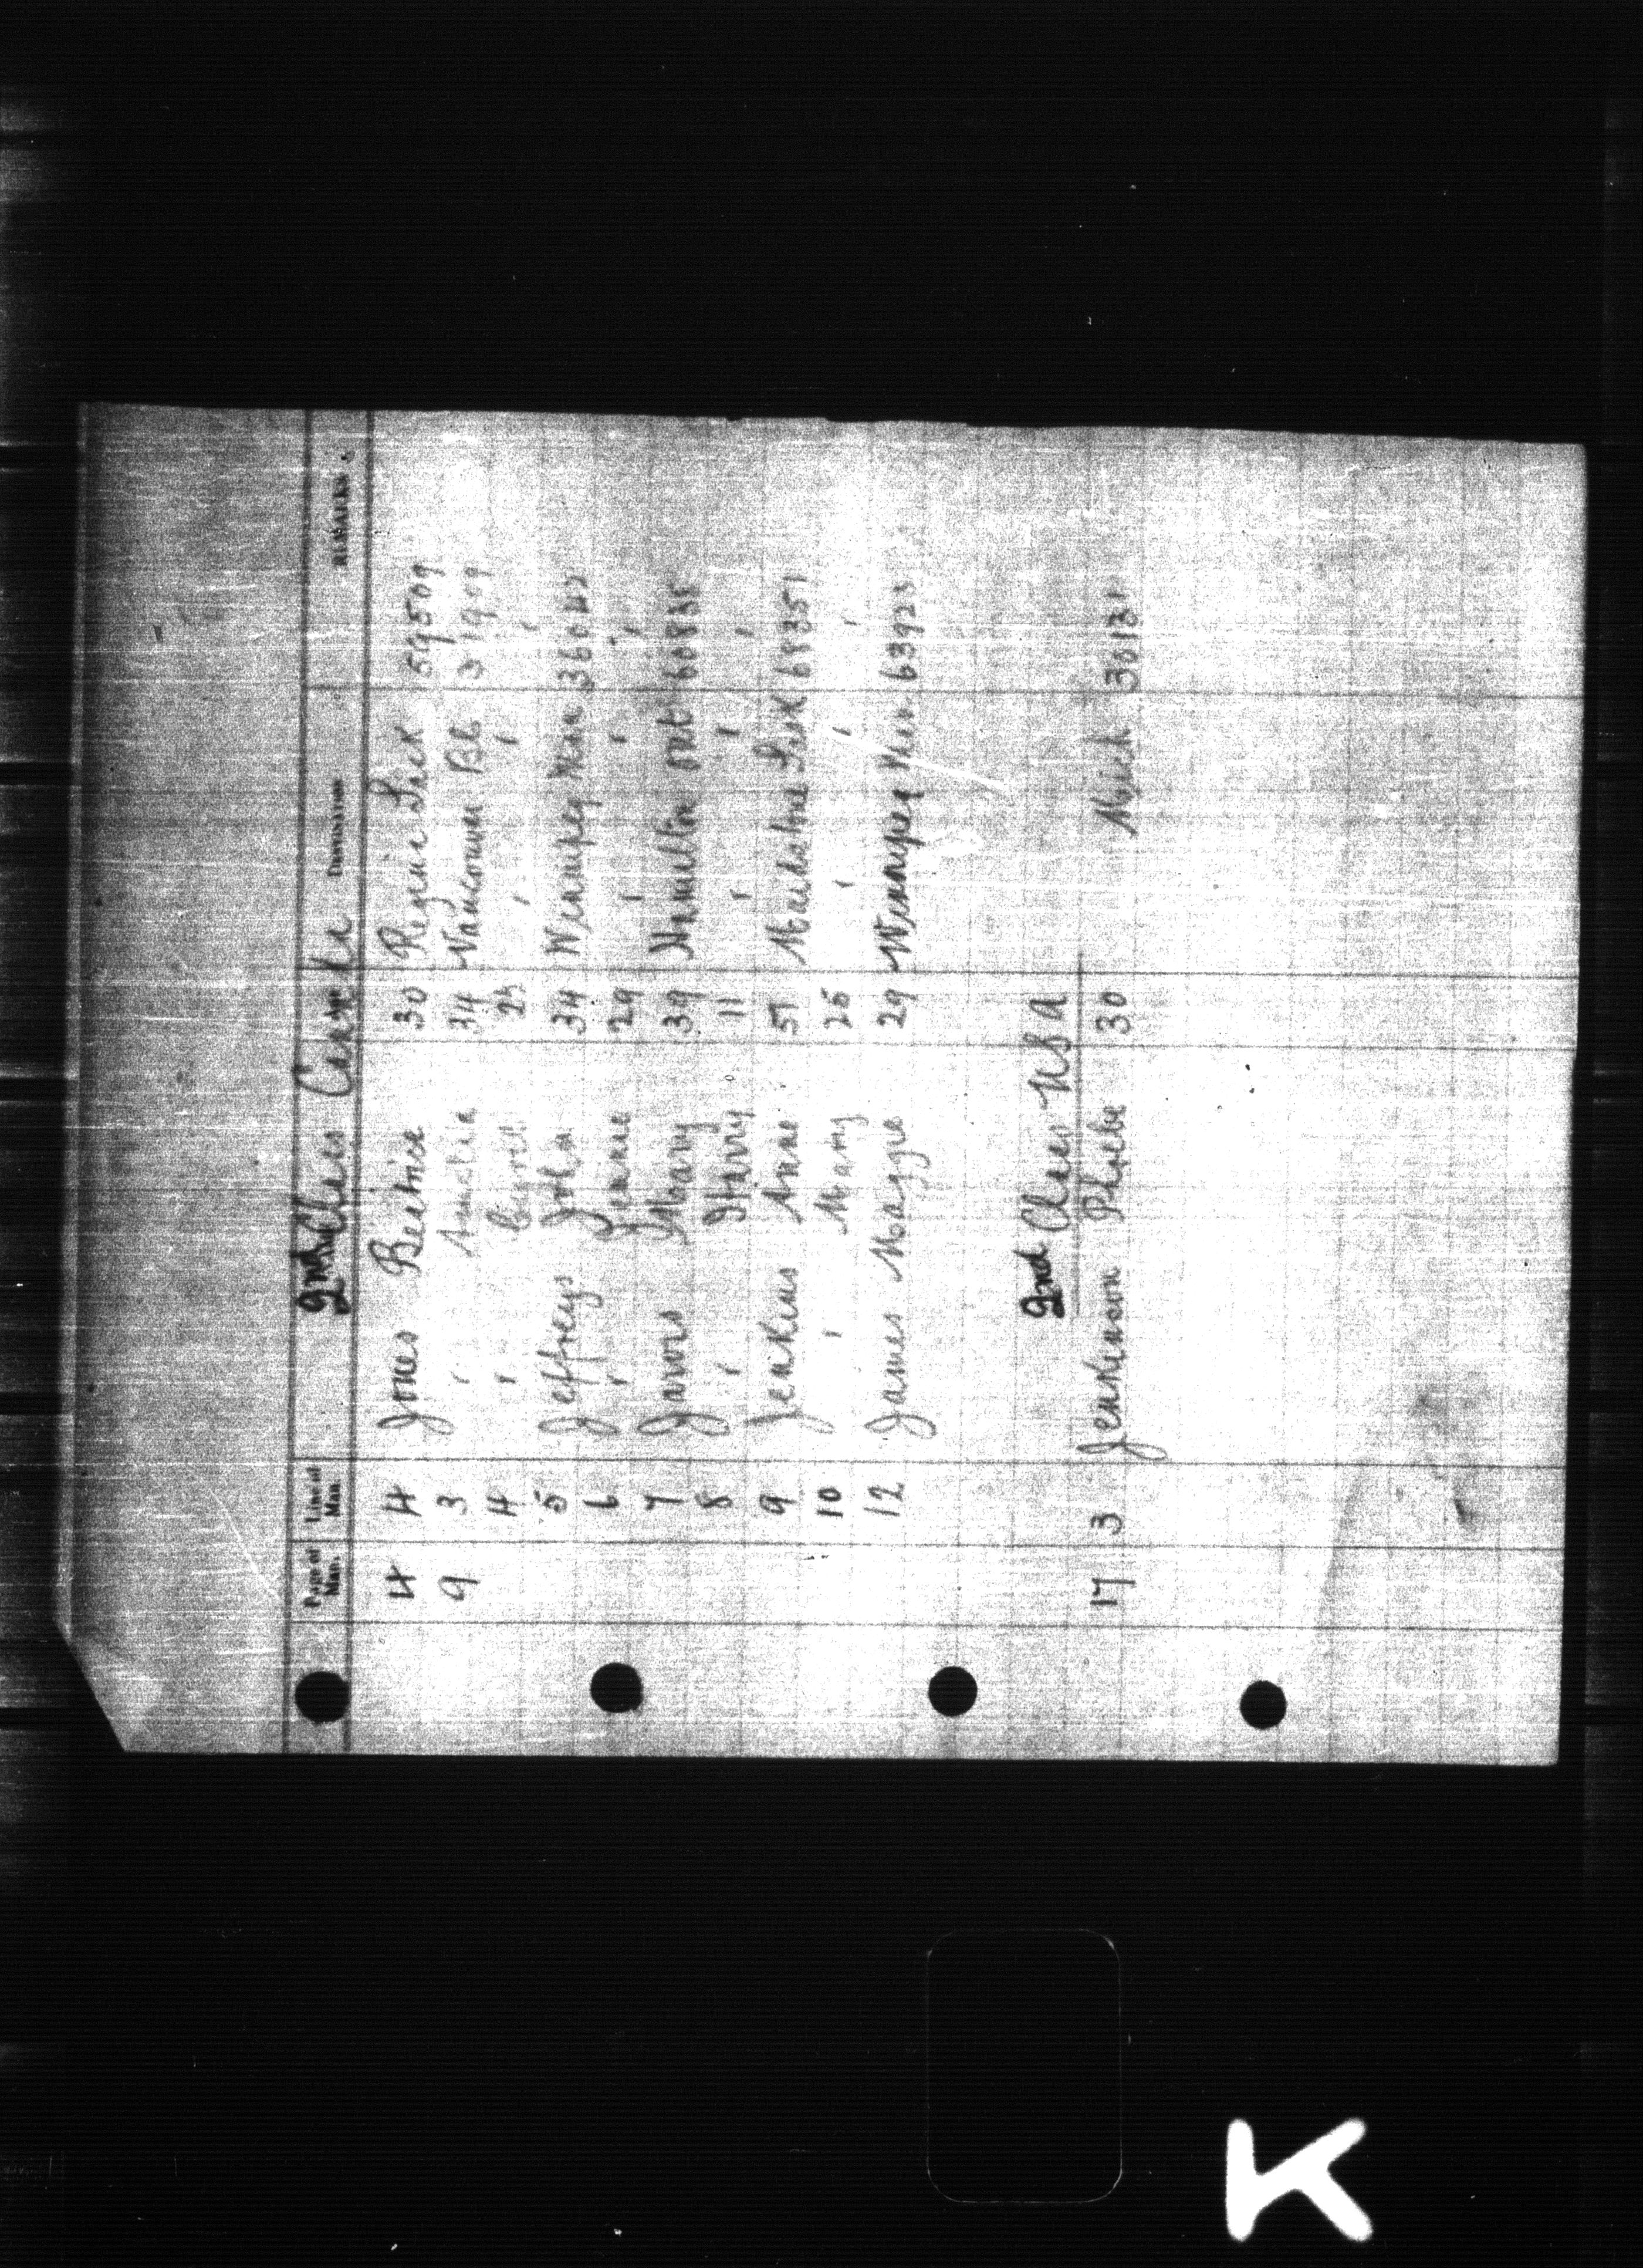 Page of Man. Line of Man. 2nd Class Canada DESTINATION REMARKS.
4 4 Jones Beatrice 30 Regina Sask 59509
9 3 " Amelia 34 Vancouver BC
4 " Cyril " "
5 Jeffreys John 34 Winnipeg Man 36042
6 " Jeanne 29 " " "
7 Jarvis Mary 39 Hamilton Ont 60835
8 " Harry 11 " " "
9 Jenkins Anne 51 Sask 68357
10 " Mary 25 " " "
12 James Maggie 29 Winnipeg Man 63923
2nd Class USA
17 3 Jenkinson Phoebe 30 Mich 30131
K